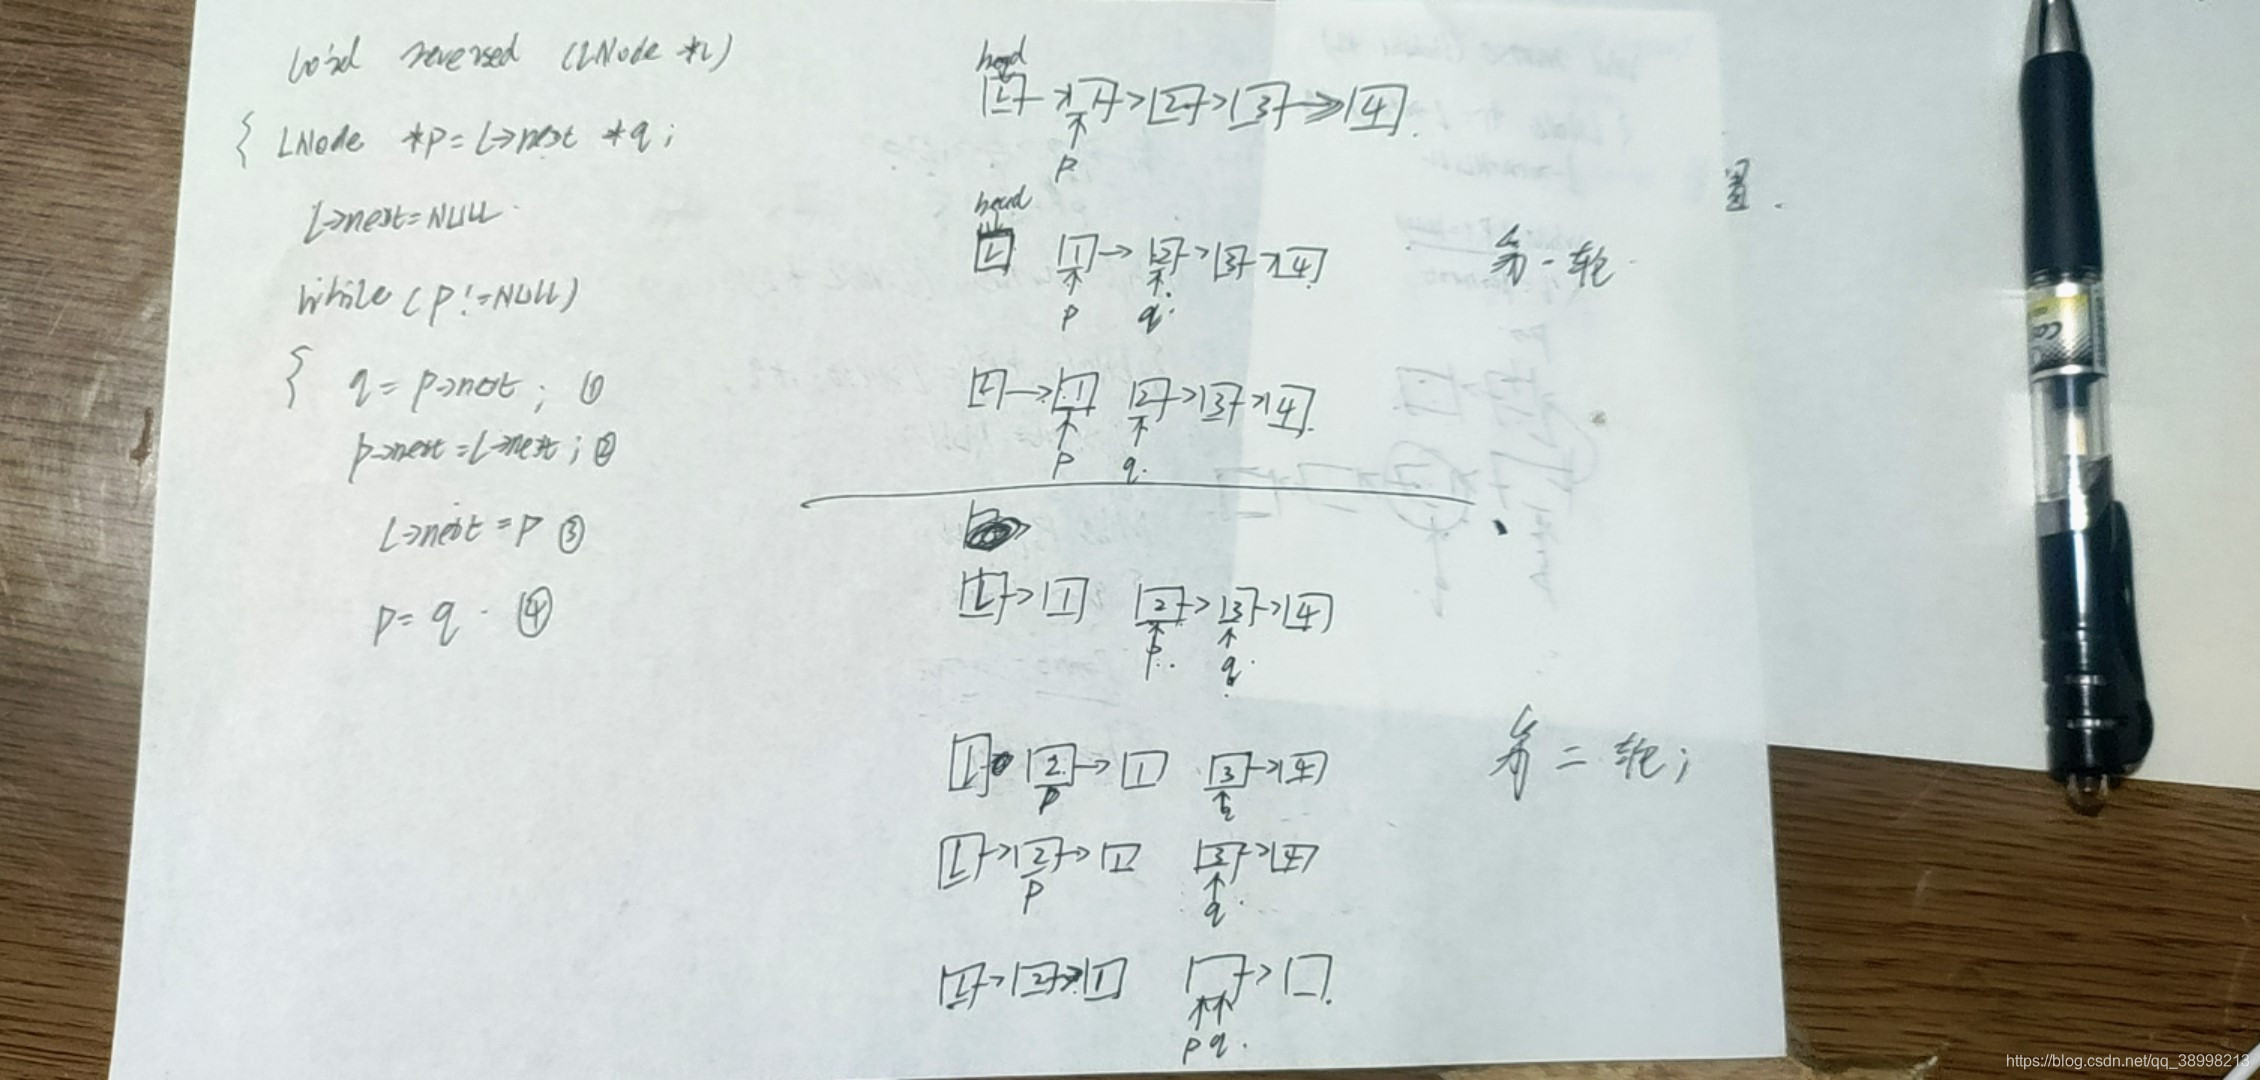 void reversed (LNode *L)
{ LNode *p=L->next *q;
L->next=NULL
while(p!=NULL)
{ q=p->next; ①
p->next=L->next; ②
L->next=p ③
p=q. ④
head
L->1->2->3->4
p
head
L 1->2->3->4
p q
第一轮
L->1 2->3->4
p q
L->1 2->3->4
p q
L 2->1 3->4
p q
第二轮;
L->2->1 3->4
p q
L->2->1
p q
https://blog.csdn.net/qq_38998213